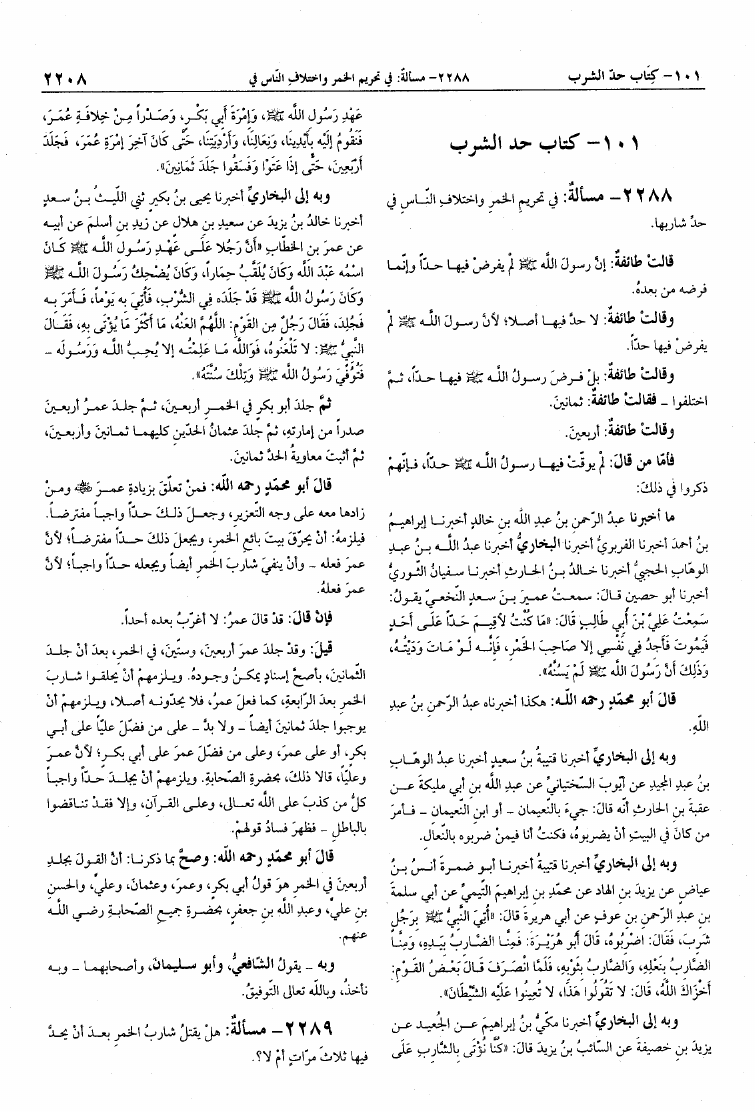 ١٠١- كِتَاب حدّ الشرب
٢٢٨٨- مسألة: في تحريم الخمر واختلاف النّاس في
٢٢٠٨
١٠١- كتاب حد الشرب
٢٢٨٨- مسألةٌ: في تحريمِ الخمرِ واختلافِ النّـاسِ في
حدِّ شاربِها.
قالتْ طائفةٌ: إنّ رسولَ اللّه ﷺ لمْ يفرضْ فيهـا حدّاً وإنّمـا
فرضه من بعدهُ.
وقالتْ طائفةٌ: لا حدَّ فيهـا أصلا؛ لأنّ رسولَ اللّـه ﷺ لمْ
يفرضْ فيها حدّاً.
وقالتْ طائفةٌ: بلْ فـرضَ رسـولُ اللّـه ﷺ فيهـا حدّاً، ثـمّ
اختلفوا - فقالتْ طائفةٌ: ثمانينَ.
وقالتْ طائفةٌ: أربعينَ.
فأمّا من قالَ: لمْ يوقّتْ فيهـا رسـولُ اللّـه ﷺ حدّاً، فـإنّهـمْ
ذكروا في ذلكَ:
ما أخبرنا عبدُ الرّحمنِ بنُ عبدِ اللّه بنِ خالدٍ أخبرنـا إبراهيـمُ
بنُ أحمدَ أخبرنا الفربريُّ أخبرنا البخاريُّ أخبرنا عبدُ اللّـه بـنُ عبـدِ
الوهّاب الحجبيُّ أخبرنا خـالدُ بـنُ الحـارثِ أخبرنـا سـفيانُ الثّـوريُّ
أخبرنا أبو حصينٍ قـالَ: سمعـتُ عمـيرَ بـنَ سـعدٍ النّخعـيَّ يقـولُ:
سَمِعْتُ عَلِيَّ بْنَ أَبِي طَالِبٍ قَالَ: «مَا كُنْتُ لأُقِيـمَ حَـدّاً عَلَـى أَحَـدٍ
فَيَمُوتَ فَأَجِدُ فِي نَفْسِي إلا صَاحِبَ الخَمْرِ، فَإِنَّـه لَـوْ مَـاتَ وَدَيْتُـهُ،
وَذَلِكَ أَنَّ رَسُولَ اللّه ﷺ لَمْ يَسُنَّهُ».
قالَ أبو محمّدٍ رحمه اللّـه: هكـذا أخبرناه عبدُ الرّحمنِ بنُ عبدِ
اللّهِ.
وبه إلى البخاريِّ أخبرنا قتيبةُ بـنُ سعيدٍ أخبرنـا عبدُ الوهّـابِ
بنُ عبدِ المجيدِ عن أيّوبَ السّختيانيِّ عن عبدِ اللّه بنِ أبي مليكةَ عـن
عقبةَ بنِ الحارثِ أنّه قالَ: جيءَ بالنّعيمان - أو ابنِ النّعيمانِ - فـأمرَ
من كانَ في البيتِ أنْ يضربوهُ، فكنتُ أنا فيمنْ ضربوه بالنّعالِ.
وبه إلى البخاريِّ أخبرنا قتيبةُ أخبرنـا أبـو ضمـرةَ أنـسُ بـنُ
عياضٍ عن يزيدَ بنِ الهادِ عن محمّدِ بنِ إبراهيمَ التّيميِّ عن أبي سلمةَ
بنِ عبدِ الرّحمنِ بنِ عوفٍ عن أبي هريرةَ قالَ: «أُتِيَ النَّبِيُّ ﷺ بِرَجُلٍ
شَرِبَ، فَقَالَ: اضْرِبُوهُ، قَالَ أَبُو هُرَيْرَةَ: فَمِنَّا الضَّارِبُ بِيَـدِهِ، وَمِنَّـا
الضَّارِبُ بِنَعْلِهِ، وَالضَّارِبُ بِثَوْبِهِ، فَلَمَّا انْصَرَفَ قَـالَ بَعْـضُ القَوْمِ:
أَخْزَاكَ اللَّهُ، قَالَ: لا تَقُولُوا هَذَا، لا تُعِينُوا عَلَيْهِ الشَّيْطَانَ».
وبه إلى البخاريِّ أخبرنا مكّيُّ بنُ إبراهيمَ عـن الجُعيدِ عـن
يزيدَ بنِ خصيفةَ عن السّائبِ بنِ يزيدَ قالَ: «كُنَّا نُؤْتَى بِالشَّارِبِ عَلَى
عَهْدِ رَسُولِ اللَّه ﷺ، وَإِمْرَةِ أَبِي بَكْرٍ، وَصَـدْراً مِـنْ خِلافَـةِ عُمَـرَ،
فَنَقُومُ إلَيْهِ بِأَيْدِينَا، وَنِعَالِنَا، وَأَرْدِيَتِنَا، حَتَّى كَانَ آخِرَ إمْرَةِ عُمَرَ، فَجَلَدَ
أَرْبَعِينَ، حَتَّى إذَا عَتَوْا وَفَسَقُوا جَلَدَ ثَمَانِينَ».
وبه إلى البخاريِّ أخبرنا يحيى بنُ بكيرٍ ثني اللّيـثُ بـنُ سـعدٍ
أخبرنا خالدُ بنُ يزيدَ عن سعيدِ بنِ هلالٍ عن زيدِ بنِ أسلمَ عن أبيـه
عن عمرَ بنِ الخطّابِ «أَنَّ رَجُلا عَلَـى عَهْـدِ رَسُـولِ اللَّـه ﷺ كَـانَ
اسْمُه عَبْدَ اللَّه وَكَانَ يُلَقَّبُ حِمَاراً، وَكَانَ يُضْحِكُ رَسُـولَ اللَّـه ﷺ
وَكَانَ رَسُولُ اللَّه ﷺ قَدْ جَلَدَه فِي الشُّرْبِ، فَأُتِيَ بِه يَوْماً، فَـأَمَرَ بِـه
فَجُلِدَ، فَقَالَ رَجُلٌ مِن القَوْمِ: اللَّهُمَّ الْعَنْهُ، مَا أَكْثَرَ مَا يُؤْتَى بِهِ، فَقَـالَ
النَّبِيُّ ﷺ: لا تَلْعَنُوهُ، فَوَاللَّه مَـا عَلِمْتُـه إلا يُحِـبُّ اللَّـه وَرَسُـولَه -
فَتُوُفِّيَ رَسُولُ اللَّه ﷺ وَتِلْكَ سُنَّتُهُ».
ثمَّ جلدَ أبو بكرٍ في الخمـرِ أربعيـنَ، ثـمّ جلـدَ عمـرُ أربعيـنَ
صدراً من إمارتهِ، ثمّ جلدَ عثمانُ الحدّين كليهمـا ثمـانينَ وأربعيـنَ،
ثمّ أثبتَ معاويةُ الحدَّ ثمانينَ.
قالَ أبو محمّدٍ رحمه اللّه: فمـنْ تعلّقَ بزيادةِ عمـرَ ﷺ ومـنْ
زادها معه على وجه التّعزيرِ، وجعـلَ ذلـكَ حـدّاً واجبـاً مفترضـاً.
فيلزمهُ: أنْ يحرّقَ بيتَ بائعِ الخمرِ، ويجعلَ ذلكَ حـدّاً مفترضـاً؛ لأنّ
عمرَ فعله - وأنْ ينفيَ شاربَ الخمرِ أيضـاً ويجعله حـدّاً واجبـاً؛ لأنّ
عمرَ فعلهُ.
فإنْ قالَ: قدْ قالَ عمرُ: لا أغرّبُ بعده أحداً.
قيلَ: وقدْ جلدَ عمرُ أربعينَ، وستّينَ، في الخمرِ، بعدَ أنْ جلـدَ
الثّمانينَ، بأصحّ إسنادٍ يمكـنُ وجـودهُ. ويلزمهـمْ أنْ يحلقـوا شـاربَ
الخمرِ بعدَ الرّابعةِ، كما فعلَ عمـرُ، فلا يحدّونـه أصلا، ويـلزمهـمْ أنْ
يوجبوا جلدَ ثمانينَ أيضـاً - ولا بدَّ - على من فضّلَ عليّاً على أبـي
بكرٍ، أو على عمرَ، وعلى من فضّلَ عمرَ على أبي بكـرٍ؛ لأنّ عمـرَ
وعليّاً، قالا ذلكَ، بحضرةِ الصّحابةِ. ويلزمهمْ أنْ يجلـدَ حـدّاً واجبـاً
كلُّ من كذبَ على اللّه تعـالى، وعلـى القـرآنِ، وإلا فقـدْ تنـاقضوا
بالباطلِ - فظهرَ فسادُ قولهمْ.
قالَ أبو محمّدٍ رحمه اللّه: وصحَّ بما ذكرنـا: أنّ القولَ بجلدِ
أربعينَ في الخمرِ هـو قولُ أبي بكرٍ، وعمرَ، وعثمانَ، وعليٍّ، والحسنِ
بنِ عليٍّ، وعبدِ اللّه بنِ جعفرٍ، بحضرةِ جميـعِ الصّحابـةِ رضـي اللّـه
عنهم.
وبه - يقولُ الشّافعيُّ، وأبو سليمانَ، وأصحابهمـا - وبـه
نأخذُ، وباللّه تعالى التّوفيقُ.
٢٢٨٩- مسألةٌ: هلْ يقتلُ شاربُ الخمرِ بعـدَ أنْ يحـدَّ
فيها ثلاثَ مرّاتٍ أمْ لا؟.